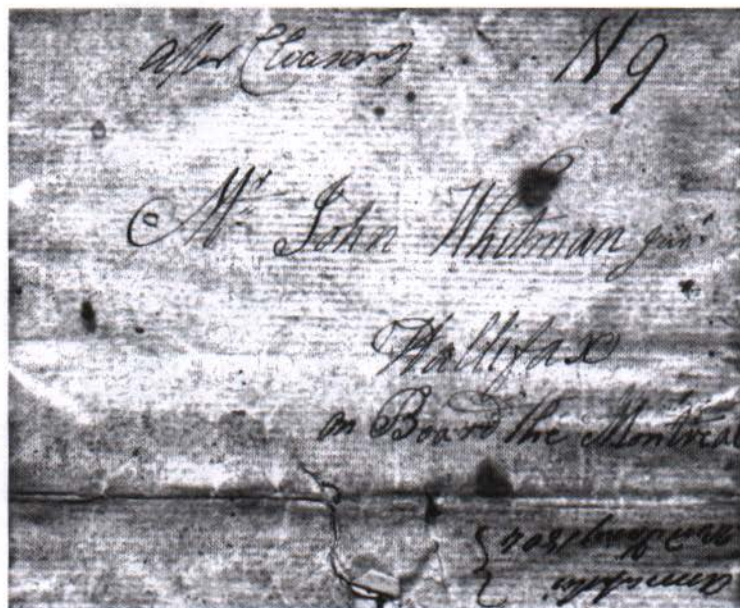 after N 9
Mr John Whitman junr
Hallifax
on Board the Montreal